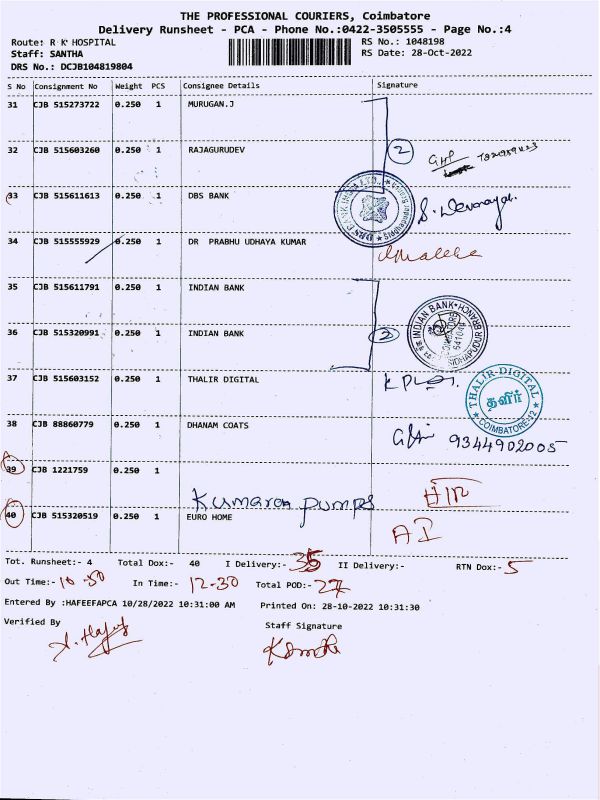 THE PROFESSIONAL COURIERS, Coimbatore
Delivery Runsheet - PCA - Phone No.:0422-3505555 - Page No.:4
Route: R K HOSPITAL RS No.: 1048198
Staff: SANTHA RS Date: 28-Oct-2022
DRS No.: DCJB104819804
S No Consignment No Weight PCS Consignee Details Signature
31 CJB 515273722 0.250 1 MURUGAN.J
32 CJB 515603260 0.250 1 RAJAGURUDEV 2
33 CJB 515611613 0.250 1 DBS BANK
DBS BANK INDIA LTD.
34 CJB 515555929 0.250 1 DR PRABHU UDHAYA KUMAR
35 CJB 515611791 0.250 1 INDIAN BANK
36 CJB 515320991 0.250 1 INDIAN BANK 2
INDIAN BANK SIDHAPUDUR BRANCH
37 CJB 515603152 0.250 1 THALIR DIGITAL
THALIR-DIGITAL தளிர் COIMBATORE-12
38 CJB 88860779 0.250 1 DHANAM COATS 9344902005
39 CJB 1221759 0.250 1
Kumaran Pumps
40 CJB 515320519 0.250 1 EURO HOME
Tot. Runsheet:- 4 Total Dox:- 40 I Delivery:- 35 II Delivery:- RTN Dox:- 5
Out Time:- 10-50 In Time:- 12-30 Total POD:- 27
Entered By :HAFEEFAPCA 10/28/2022 10:31:00 AM Printed On: 28-10-2022 10:31:30
Verified By Staff Signature